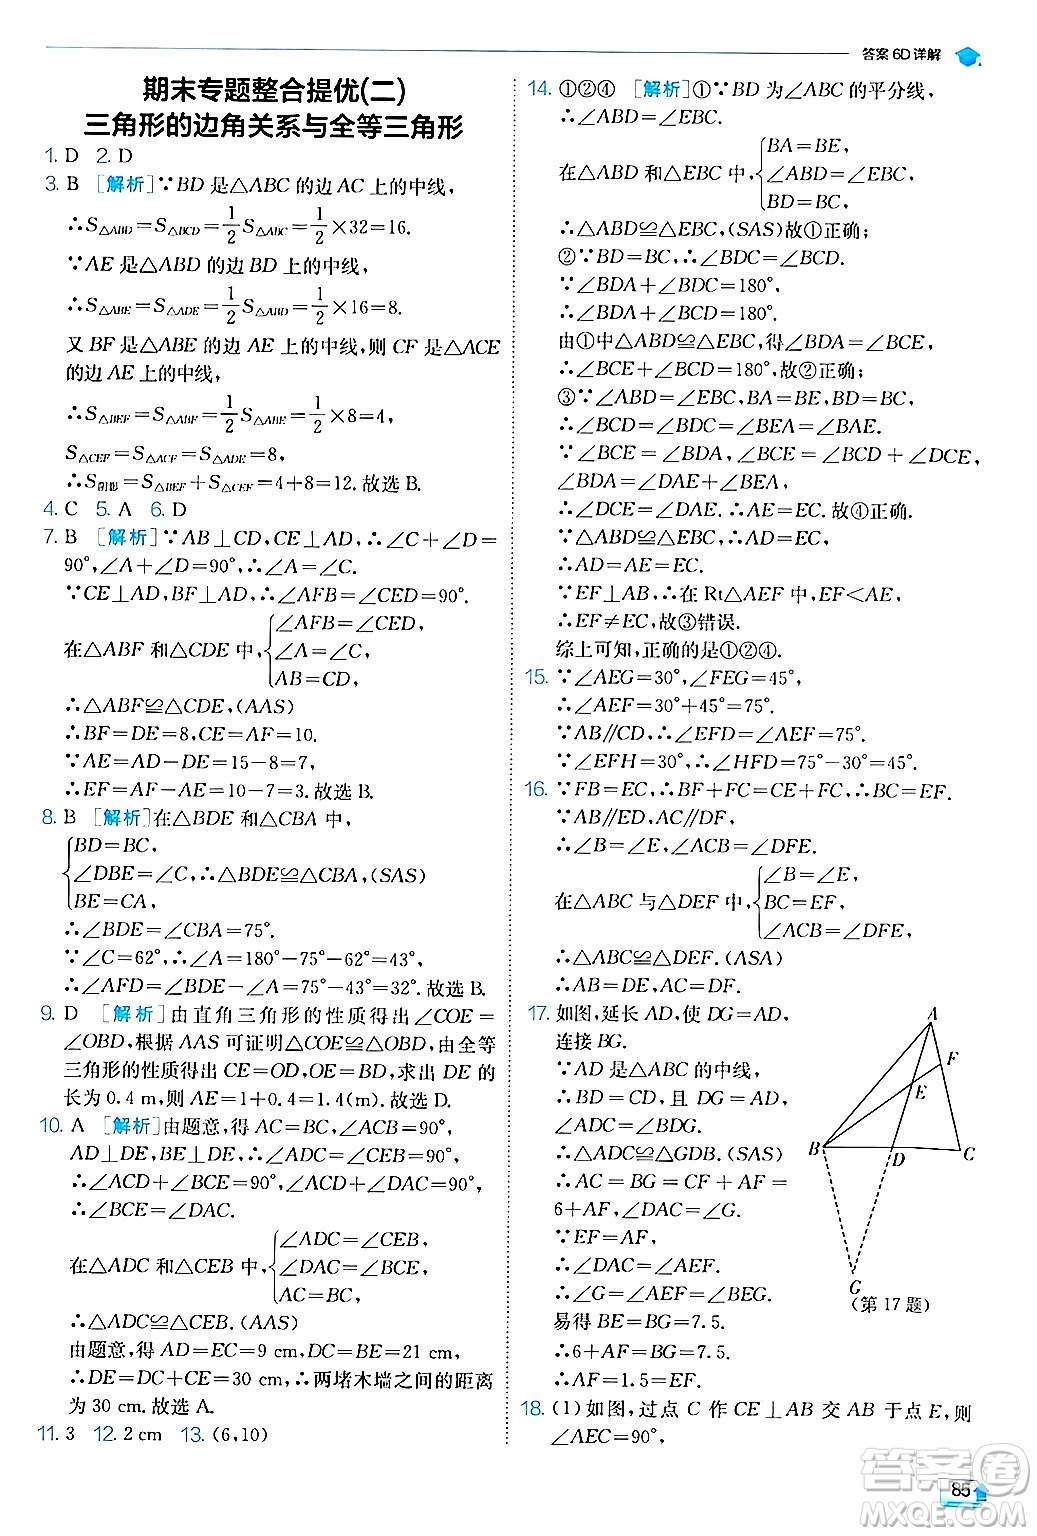 答案 6D 详解
期末专题整合提优(二)
三角形的边角关系与全等三角形
1. D 2. D
3. B [解析]∵BD是△ABC的边AC上的中线,
∴S△ABD=S△BCD=1/2S△ABC=1/2×32=16.
∵AE是△ABD的边BD上的中线,
∴S△ABE=S△ADE=1/2S△ABD=1/2×16=8.
又BF是△ABE的边AE上的中线,则CF是△ACE
的边AE上的中线,
∴S△BEF=S△ABF=1/2S△ABE=1/2×8=4,
S△CEF=S△ACF=S△ADE=8,
∴S阴影=S△BEF+S△CEF=4+8=12.故选B.
4. C 5. A 6. D
7. B [解析]∵AB⊥CD,CE⊥AD,∴∠C+∠D=
90°,∠A+∠D=90°,∴∠A=∠C.
∵CE⊥AD,BF⊥AD,∴∠AFB=∠CED=90°.
在△ABF和△CDE中,{∠AFB=∠CED,
∠A=∠C,
AB=CD,
∴△ABF≌△CDE,(AAS)
∴BF=DE=8,CE=AF=10.
∵AE=AD-DE=15-8=7,
∴EF=AF-AE=10-7=3.故选B.
8. B [解析]在△BDE和△CBA中,
{BD=BC,
∠DBE=∠C,∴△BDE≌△CBA,(SAS)
BE=CA,
∴∠BDE=∠CBA=75°.
∵∠C=62°,∴∠A=180°-75°-62°=43°,
∴∠AFD=∠BDE-∠A=75°-43°=32°.故选B.
9. D [解析]由直角三角形的性质得出∠COE=
∠OBD,根据AAS可证明△COE≌△OBD,由全等
三角形的性质得出CE=OD,OE=BD,求出DE的
长为0.4 m,则AE=1+0.4=1.4(m).故选D.
10. A [解析]由题意,得AC=BC,∠ACB=90°,
AD⊥DE,BE⊥DE,∴∠ADC=∠CEB=90°,
∴∠ACD+∠BCE=90°,∠ACD+∠DAC=90°,
∴∠BCE=∠DAC.
在△ADC和△CEB中,{∠ADC=∠CEB,
∠DAC=∠BCE,
AC=BC,
∴△ADC≌△CEB.(AAS)
由题意,得AD=EC=9 cm,DC=BE=21 cm,
∴DE=DC+CE=30 cm,∴两堵木墙之间的距离
为30 cm.故选A.
11. 3 12. 2 cm 13. (6,10)
14. ①②④ [解析]①∵BD为∠ABC的平分线,
∴∠ABD=∠EBC.
在△ABD和△EBC中,{BA=BE,
∠ABD=∠EBC,
BD=BC,
∴△ABD≌△EBC,(SAS)故①正确;
②∵BD=BC,∴∠BDC=∠BCD.
∵∠BDA+∠BDC=180°,
∴∠BDA+∠BCD=180°.
由①中△ABD≌△EBC,得∠BDA=∠BCE,
∴∠BCE+∠BCD=180°,故②正确;
③∵∠ABD=∠EBC,BA=BE,BD=BC,
∴∠BCD=∠BDC=∠BEA=∠BAE.
∵∠BCE=∠BDA,∴∠BCE=∠BCD+∠DCE,
∠BDA=∠DAE+∠BEA,
∴∠DCE=∠DAE,∴AE=EC.故④正确.
∵△ABD≌△EBC,∴AD=EC,
∴AD=AE=EC.
∵EF⊥AB,∴在Rt△AEF中,EF<AE,
∴EF≠EC,故③错误.
综上可知,正确的是①②④.
15. ∵∠AEG=30°,∠FEG=45°,
∴∠AEF=30°+45°=75°.
∵AB//CD,∴∠EFD=∠AEF=75°.
∵∠EFH=30°,∴∠HFD=75°-30°=45°.
16. ∵FB=EC,∴BF+FC=CE+FC,∴BC=EF.
∵AB//ED,AC//DF,
∴∠B=∠E,∠ACB=∠DFE.
在△ABC与△DEF中,{∠B=∠E,
BC=EF,
∠ACB=∠DFE,
∴△ABC≌△DEF.(ASA)
∴AB=DE,AC=DF.
17. 如图,延长AD,使DG=AD,
连接BG.
∵AD是△ABC的中线,
∴BD=CD,且DG=AD,
∠ADC=∠BDG.
∴△ADC≌△GDB.(SAS)
∴AC=BG=CF+AF=
6+AF,∠DAC=∠G.
∵EF=AF,
∴∠DAC=∠AEF,
∴∠G=∠AEF=∠BEG,
易得BE=BG=7.5.
∴6+AF=BG=7.5.
∴AF=1.5=EF.
A
F
E
B
D
C
G
(第17题)
18. (1)如图,过点C作CE⊥AB交AB于点E,则
∠AEC=90°,
85
答案圈
MXQE.COM